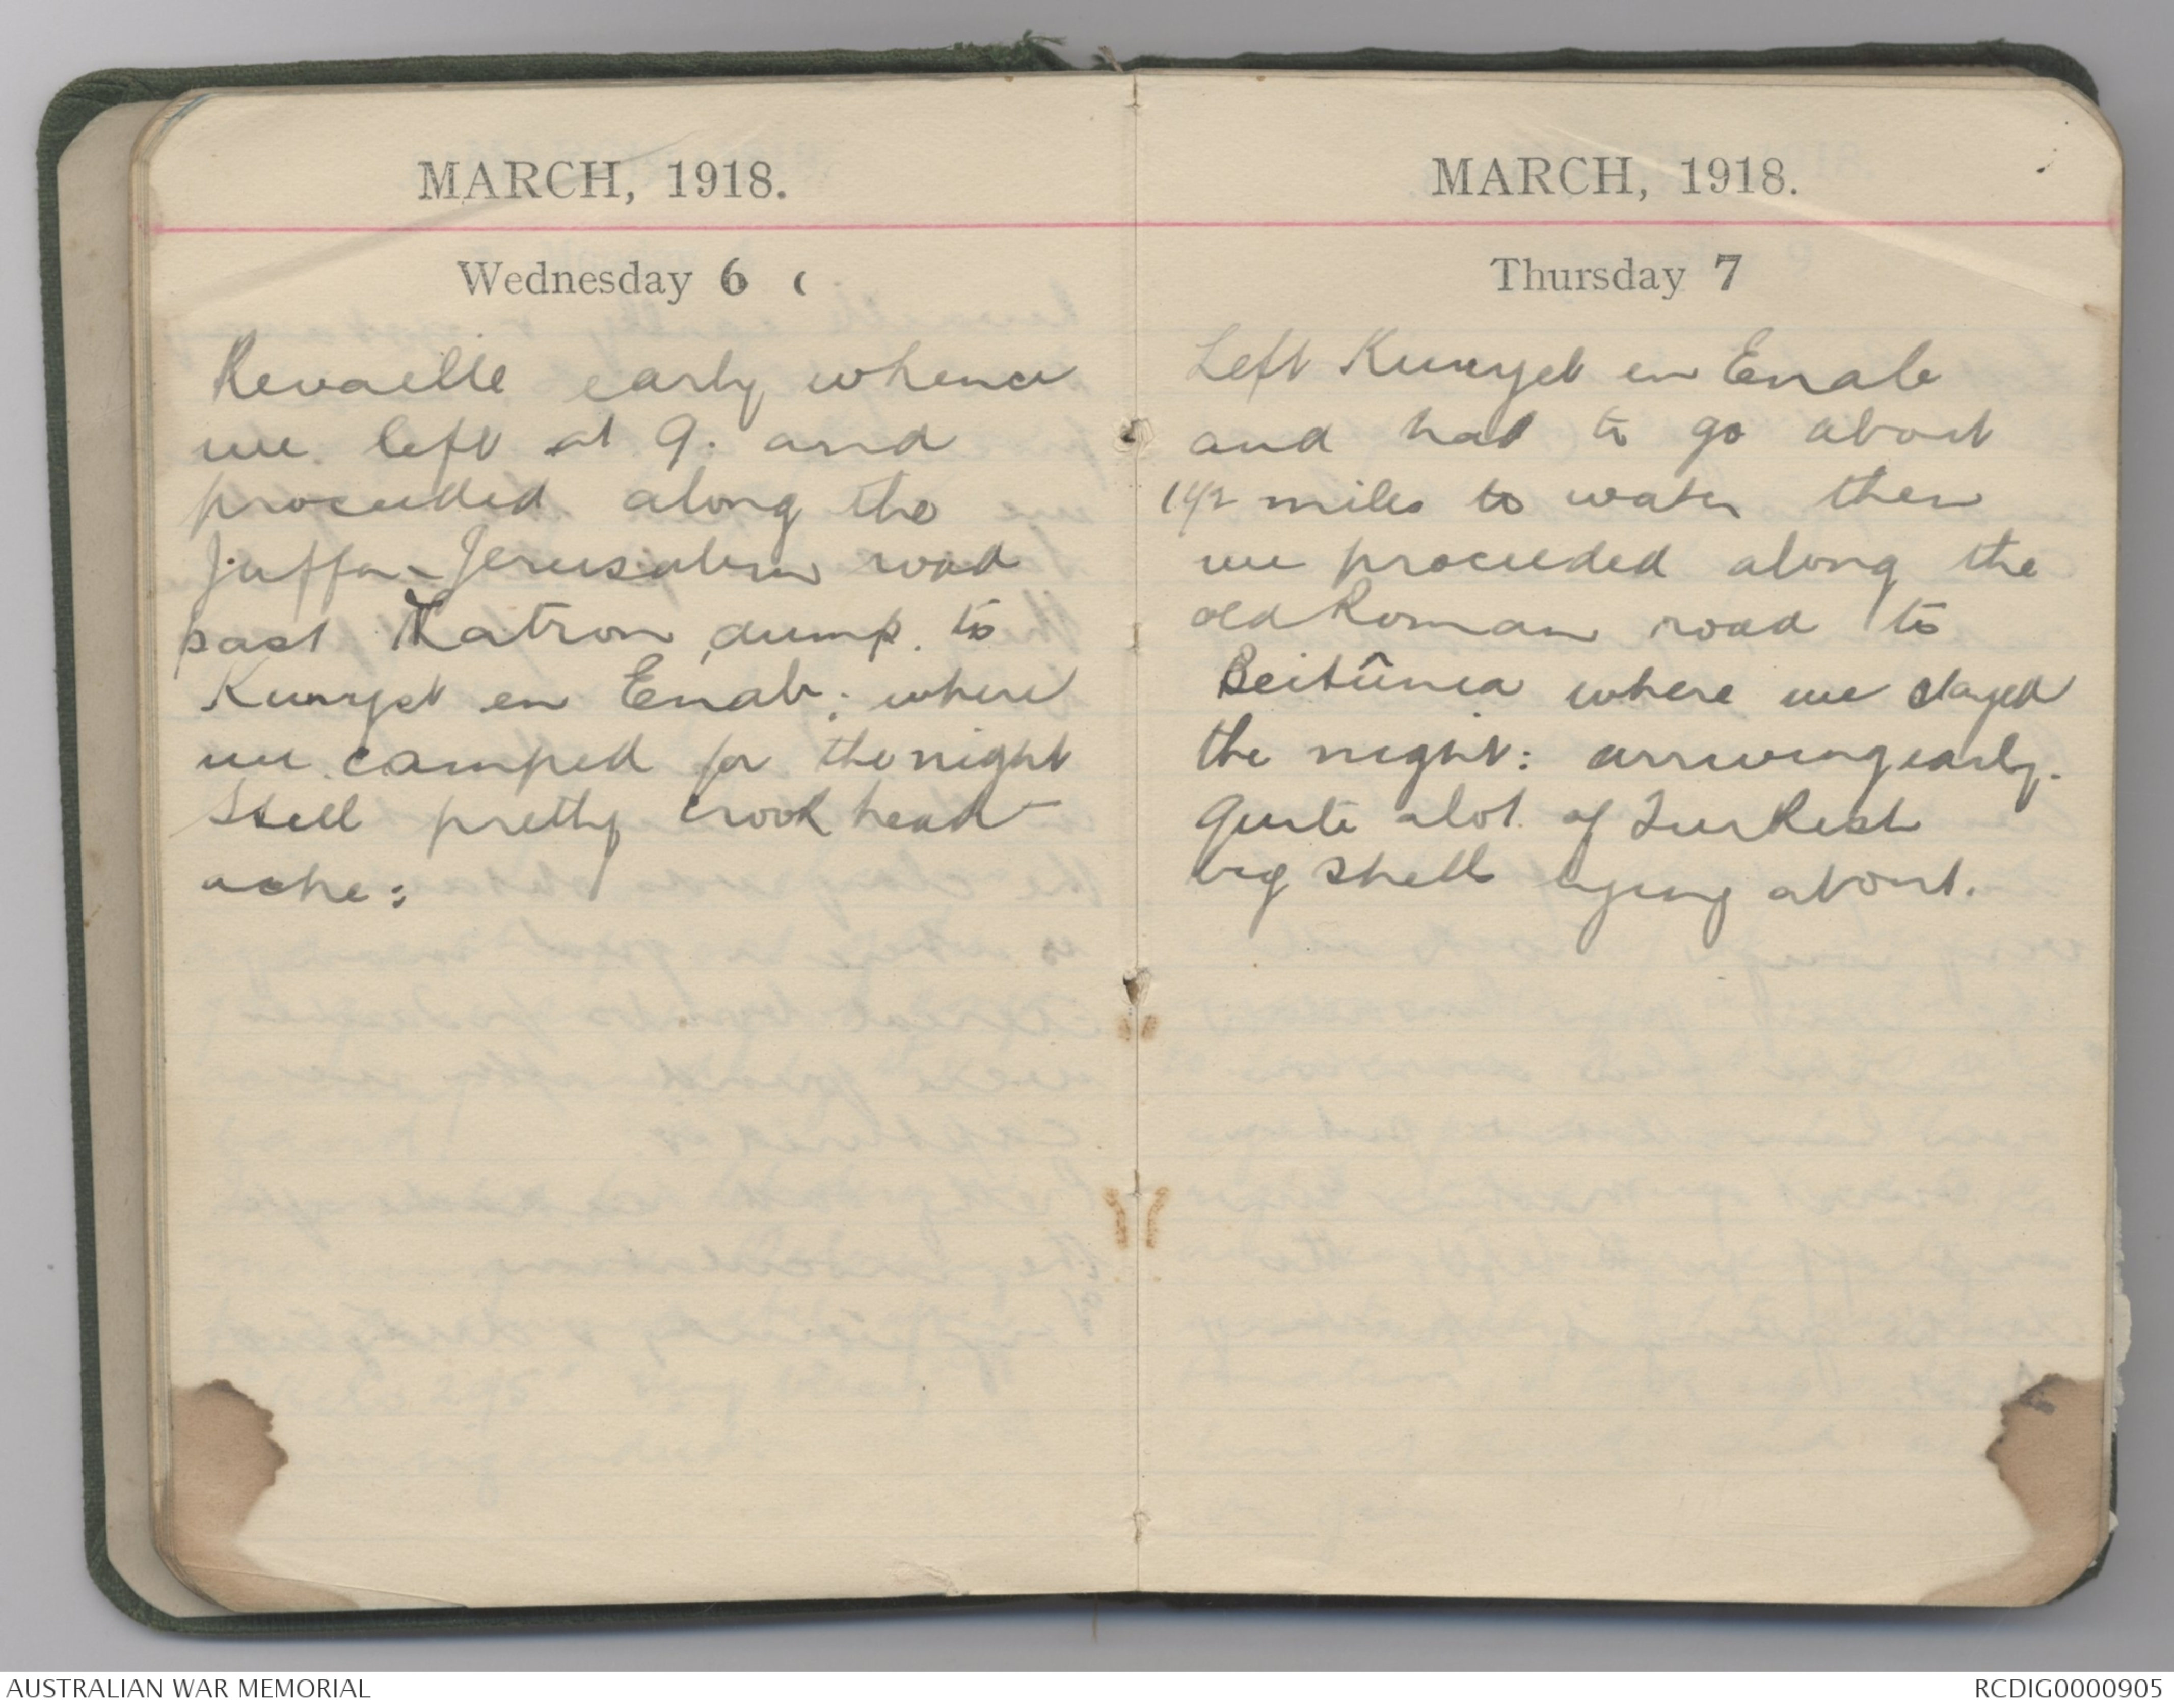 MARCH, 1918.
Wednesday 6 (
Revaille early whence
we left at 9. and
proceeded along the
Juffa-Jerusalem road
past Katron dump. to
Kuryet en Enab; where
we camped for the night
Still pretty crook head-
ache:
MARCH, 1918.
Thursday 7
Left Kuryet en Enab
and had to go about
1 1/2 miles to water then
we proceeded along the
old Roman road to
Beitûnia where we stayed
the night: arriving early.
Quite alot of Turkish
big shells lying about.
AUSTRALIAN WAR MEMORIAL
RCDIG0000905